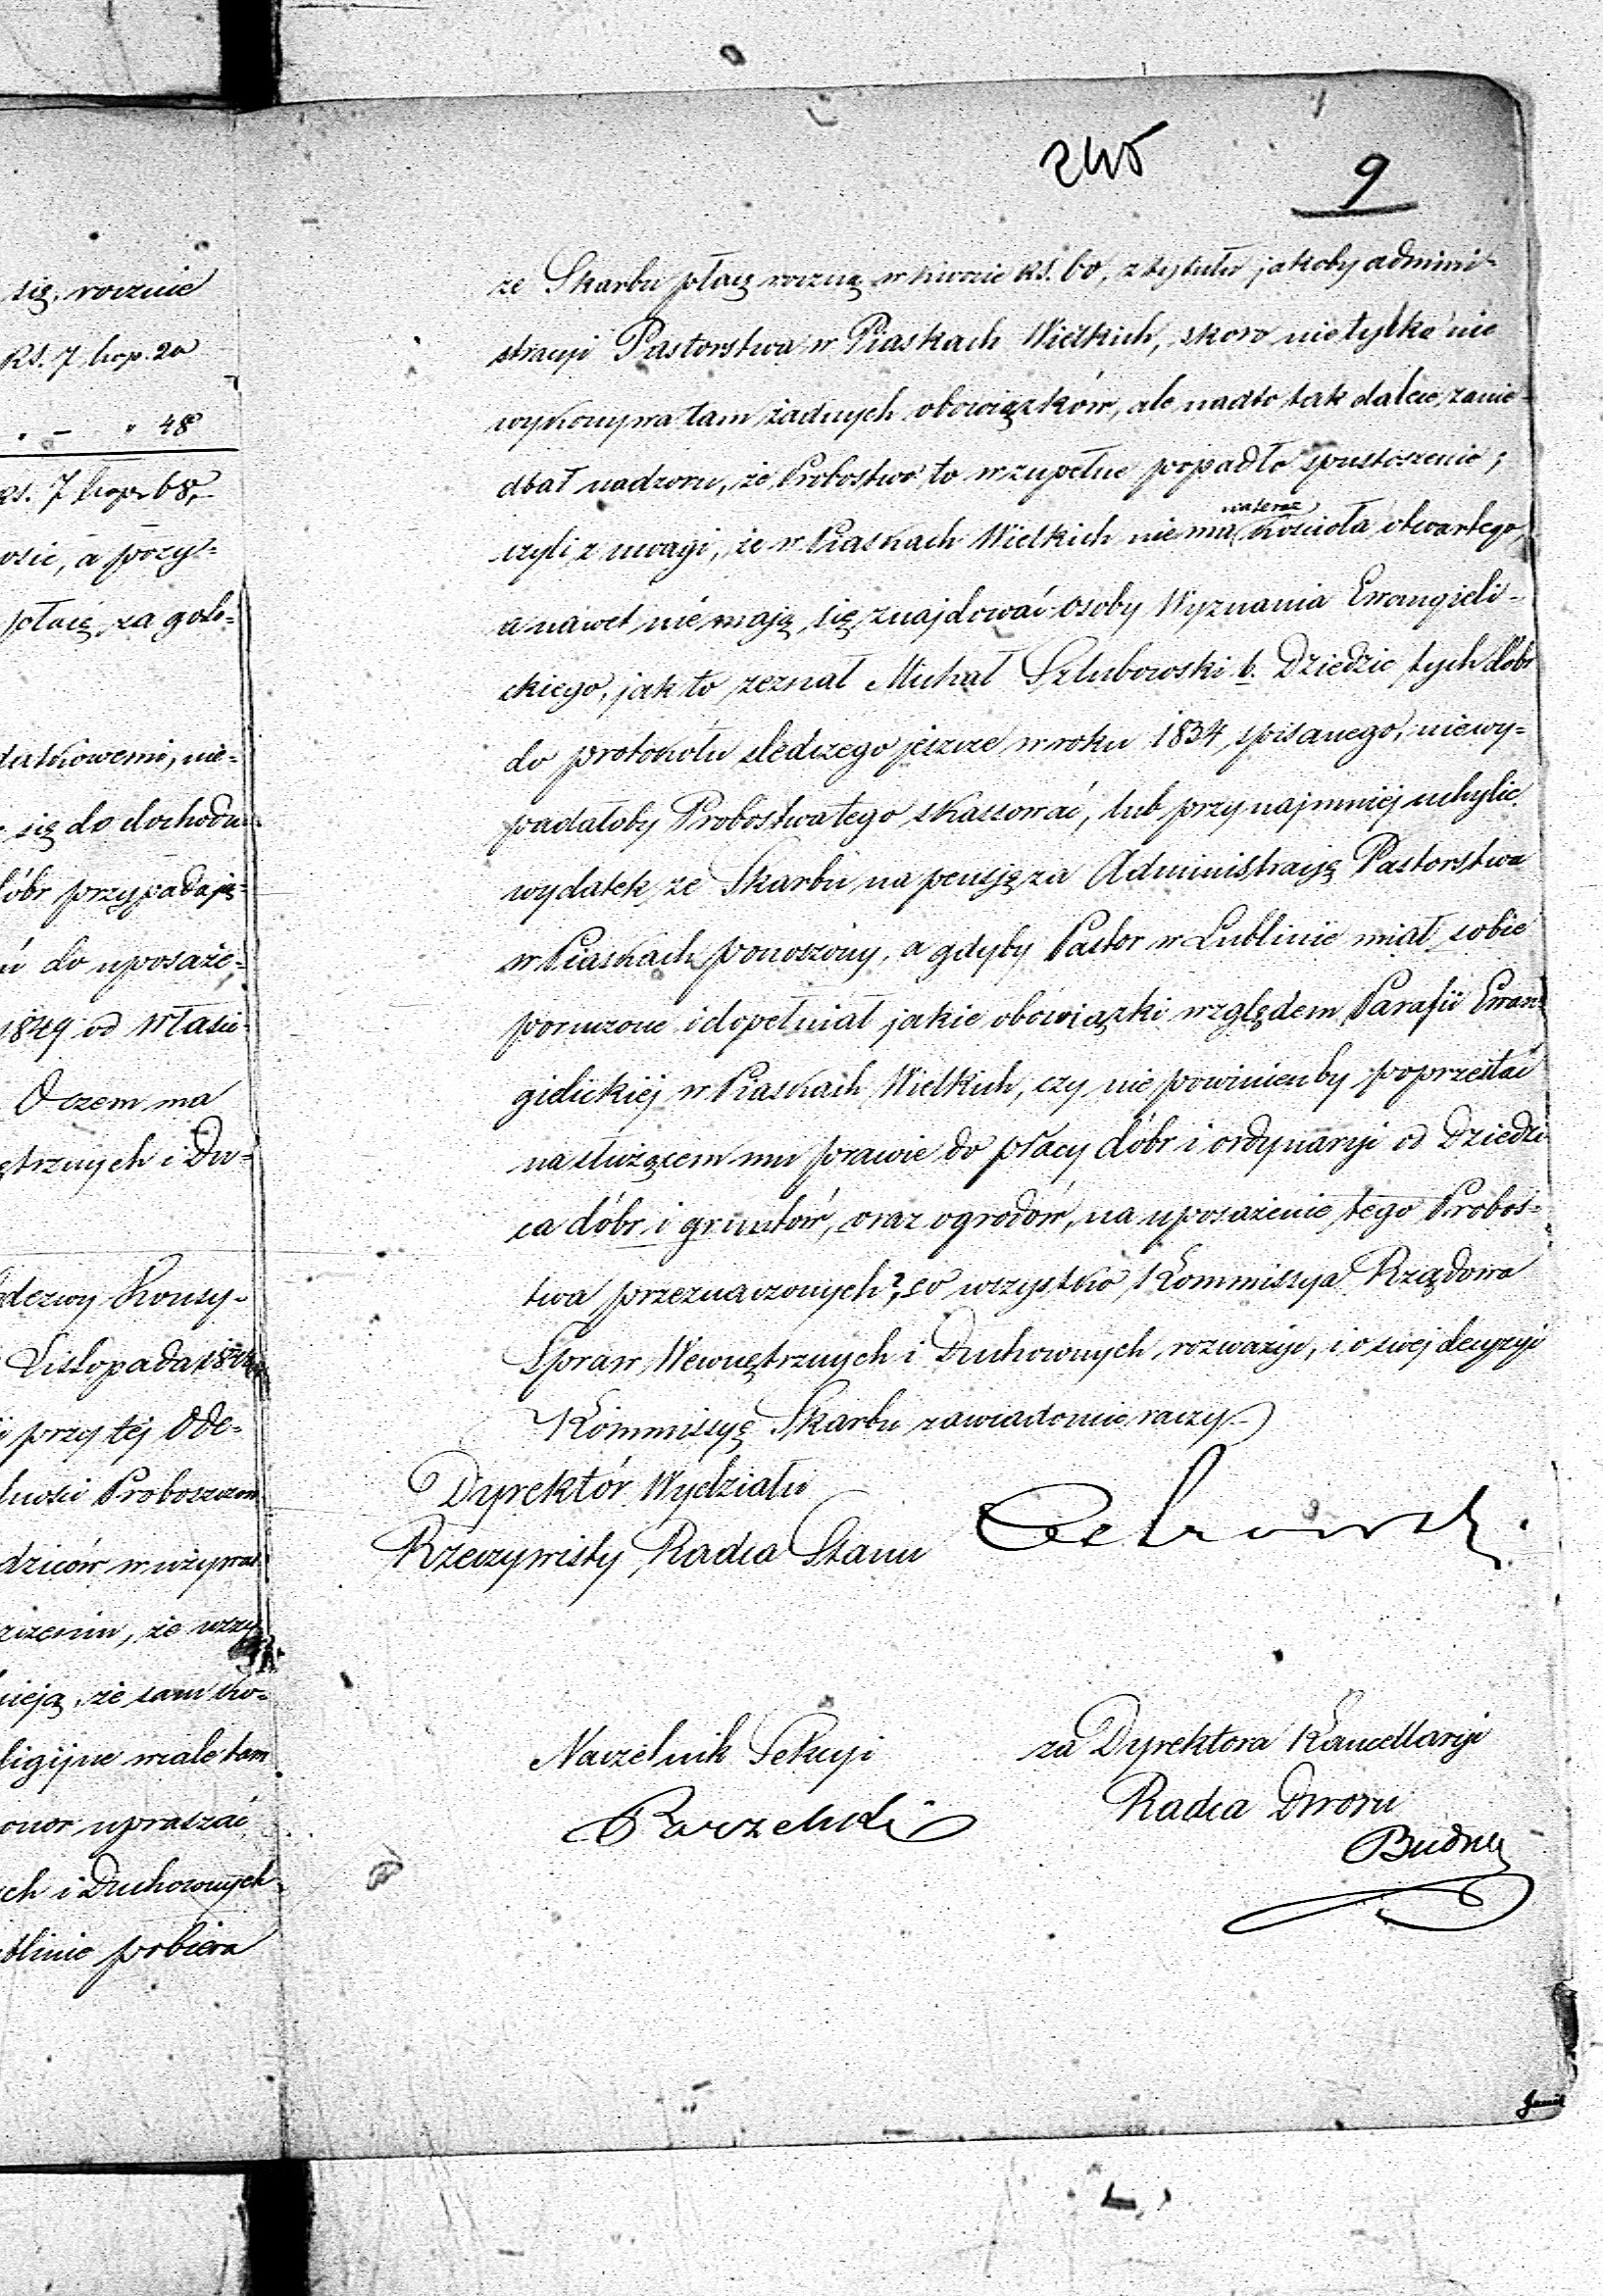 się, rocznie
RS. 7 kop. 20
" – " 48
RS. 7 kop. 68,–
osić, a pozys=
płacę, za goło=
datkowemi, nie=
się do dochodu
dóbr przypadają=
do uposaże=
1849 od Właści=
O czem ma
ętrznych i Du=
dezwy Konsy-
Listopada
przy tej Ode=
Proboszczow
dziców w używa
że wszy
nieją, że sam ko=
ligijne wcale tam
onor upraszać
ch i Duchownych
blinie pobiera
245
9
ze Skarbu płacę roczną w kwocie RS. 60, z tytułu jakoby admini-
stracyi Pastorstwa w Piaskach Wielkich, skoro nie tylko nie
wykonywa tam żadnych obowiązków, ale nadto tak dalece zanie=
dbał nadzoru, że Probostwo to w zupełne popadło spustoszenie;
czyli z uwagi, że w Piaskach Wielkich nie ma nateraz Kościoła otwartego,
a nawet nie mają się znajdować osoby Wyznania Ewangieli-
ckiego, jak to zeznał Michał Szluborski b. Dziedzic tych dóbr
do protokołu śledczego jeszcze w roku 1834 spisanego, niewy=
padałoby Probostwa tego skassować, lub przynajmniej uchylić
wydatek ze Skarbu na pensję za Administracyę Pastorstwa
w Piaskach ponoszony, a gdyby Pastor w Lublinie miał sobie
poruczone i dopełniał jakie obowiązki względem Parafii Ewan=
gielickiej w Piaskach Wielkich, czy nie powinienby poprzestać
na służącem mu prawie do płacy dóbr i ordynaryi od Dziedzi
ca dóbr i gruntów, oraz ogrodów, na uposażenie tego Probos=
twa przeznaczonych?, co wszystko Kommissya Rządowa
Spraw Wewnętrznych i Duchownych rozważyć, i o swej decyzyi
Kommissyę Skarbu zawiadomić raczy.–
Dyrektór Wydziału
Rzeczywisty Radca Stanu
Naczelnik Sekcyi
za Dyrektora Kancellaryi
Radca Dworu
Budny